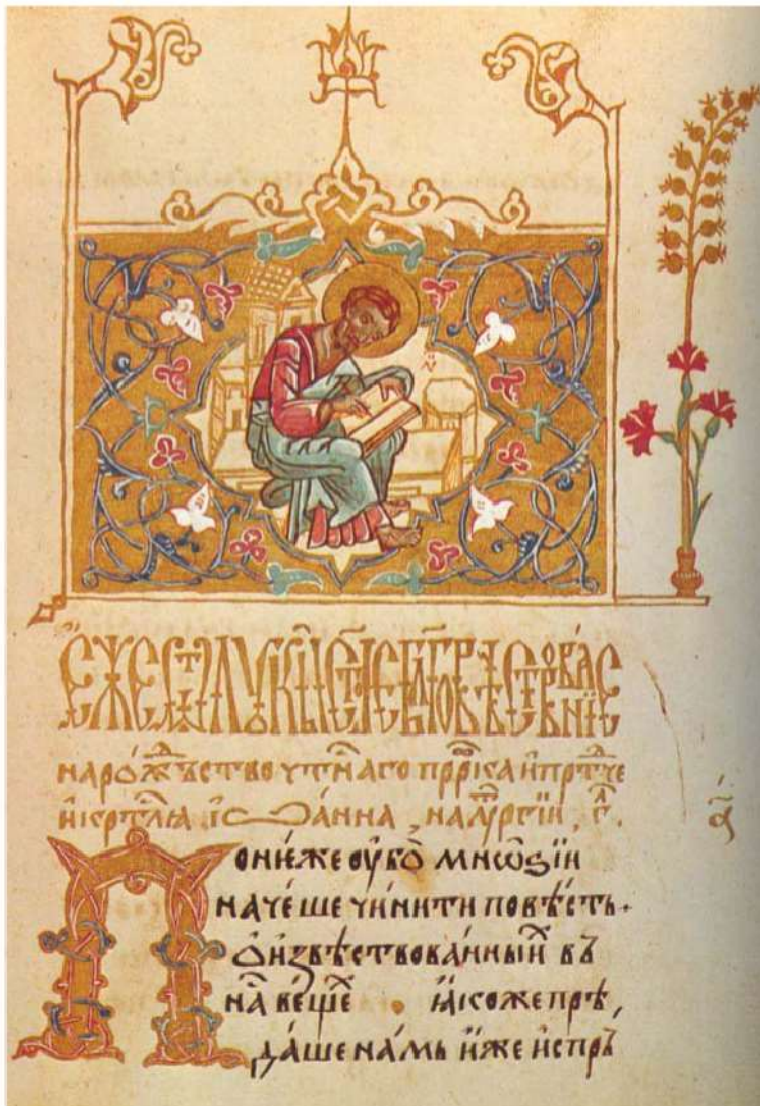 Е҆́же ѿ Лꙋкы̀ ст҃ое бл҃говѣствова́нїе
на рож҃ъство чтⷭ҇наго прⷪ҇рка и҆ прⷣтче
и҆ крⷭ҇тлѧ і҆ѡа́нна, на лиⷮꙋргїи, г҃.
а҃
Поне́же ᲂу҆́бо мнѡ́ѕїи
нача́ше чини́ти по́вѣсть
ѡ҆ и҆звѣ́ствованныиⷯ въ
наⷭ҇ ве́щеⷯ. ꙗ҆́коже пре́
да́ше на́мъ и҆̀же и҆спръ